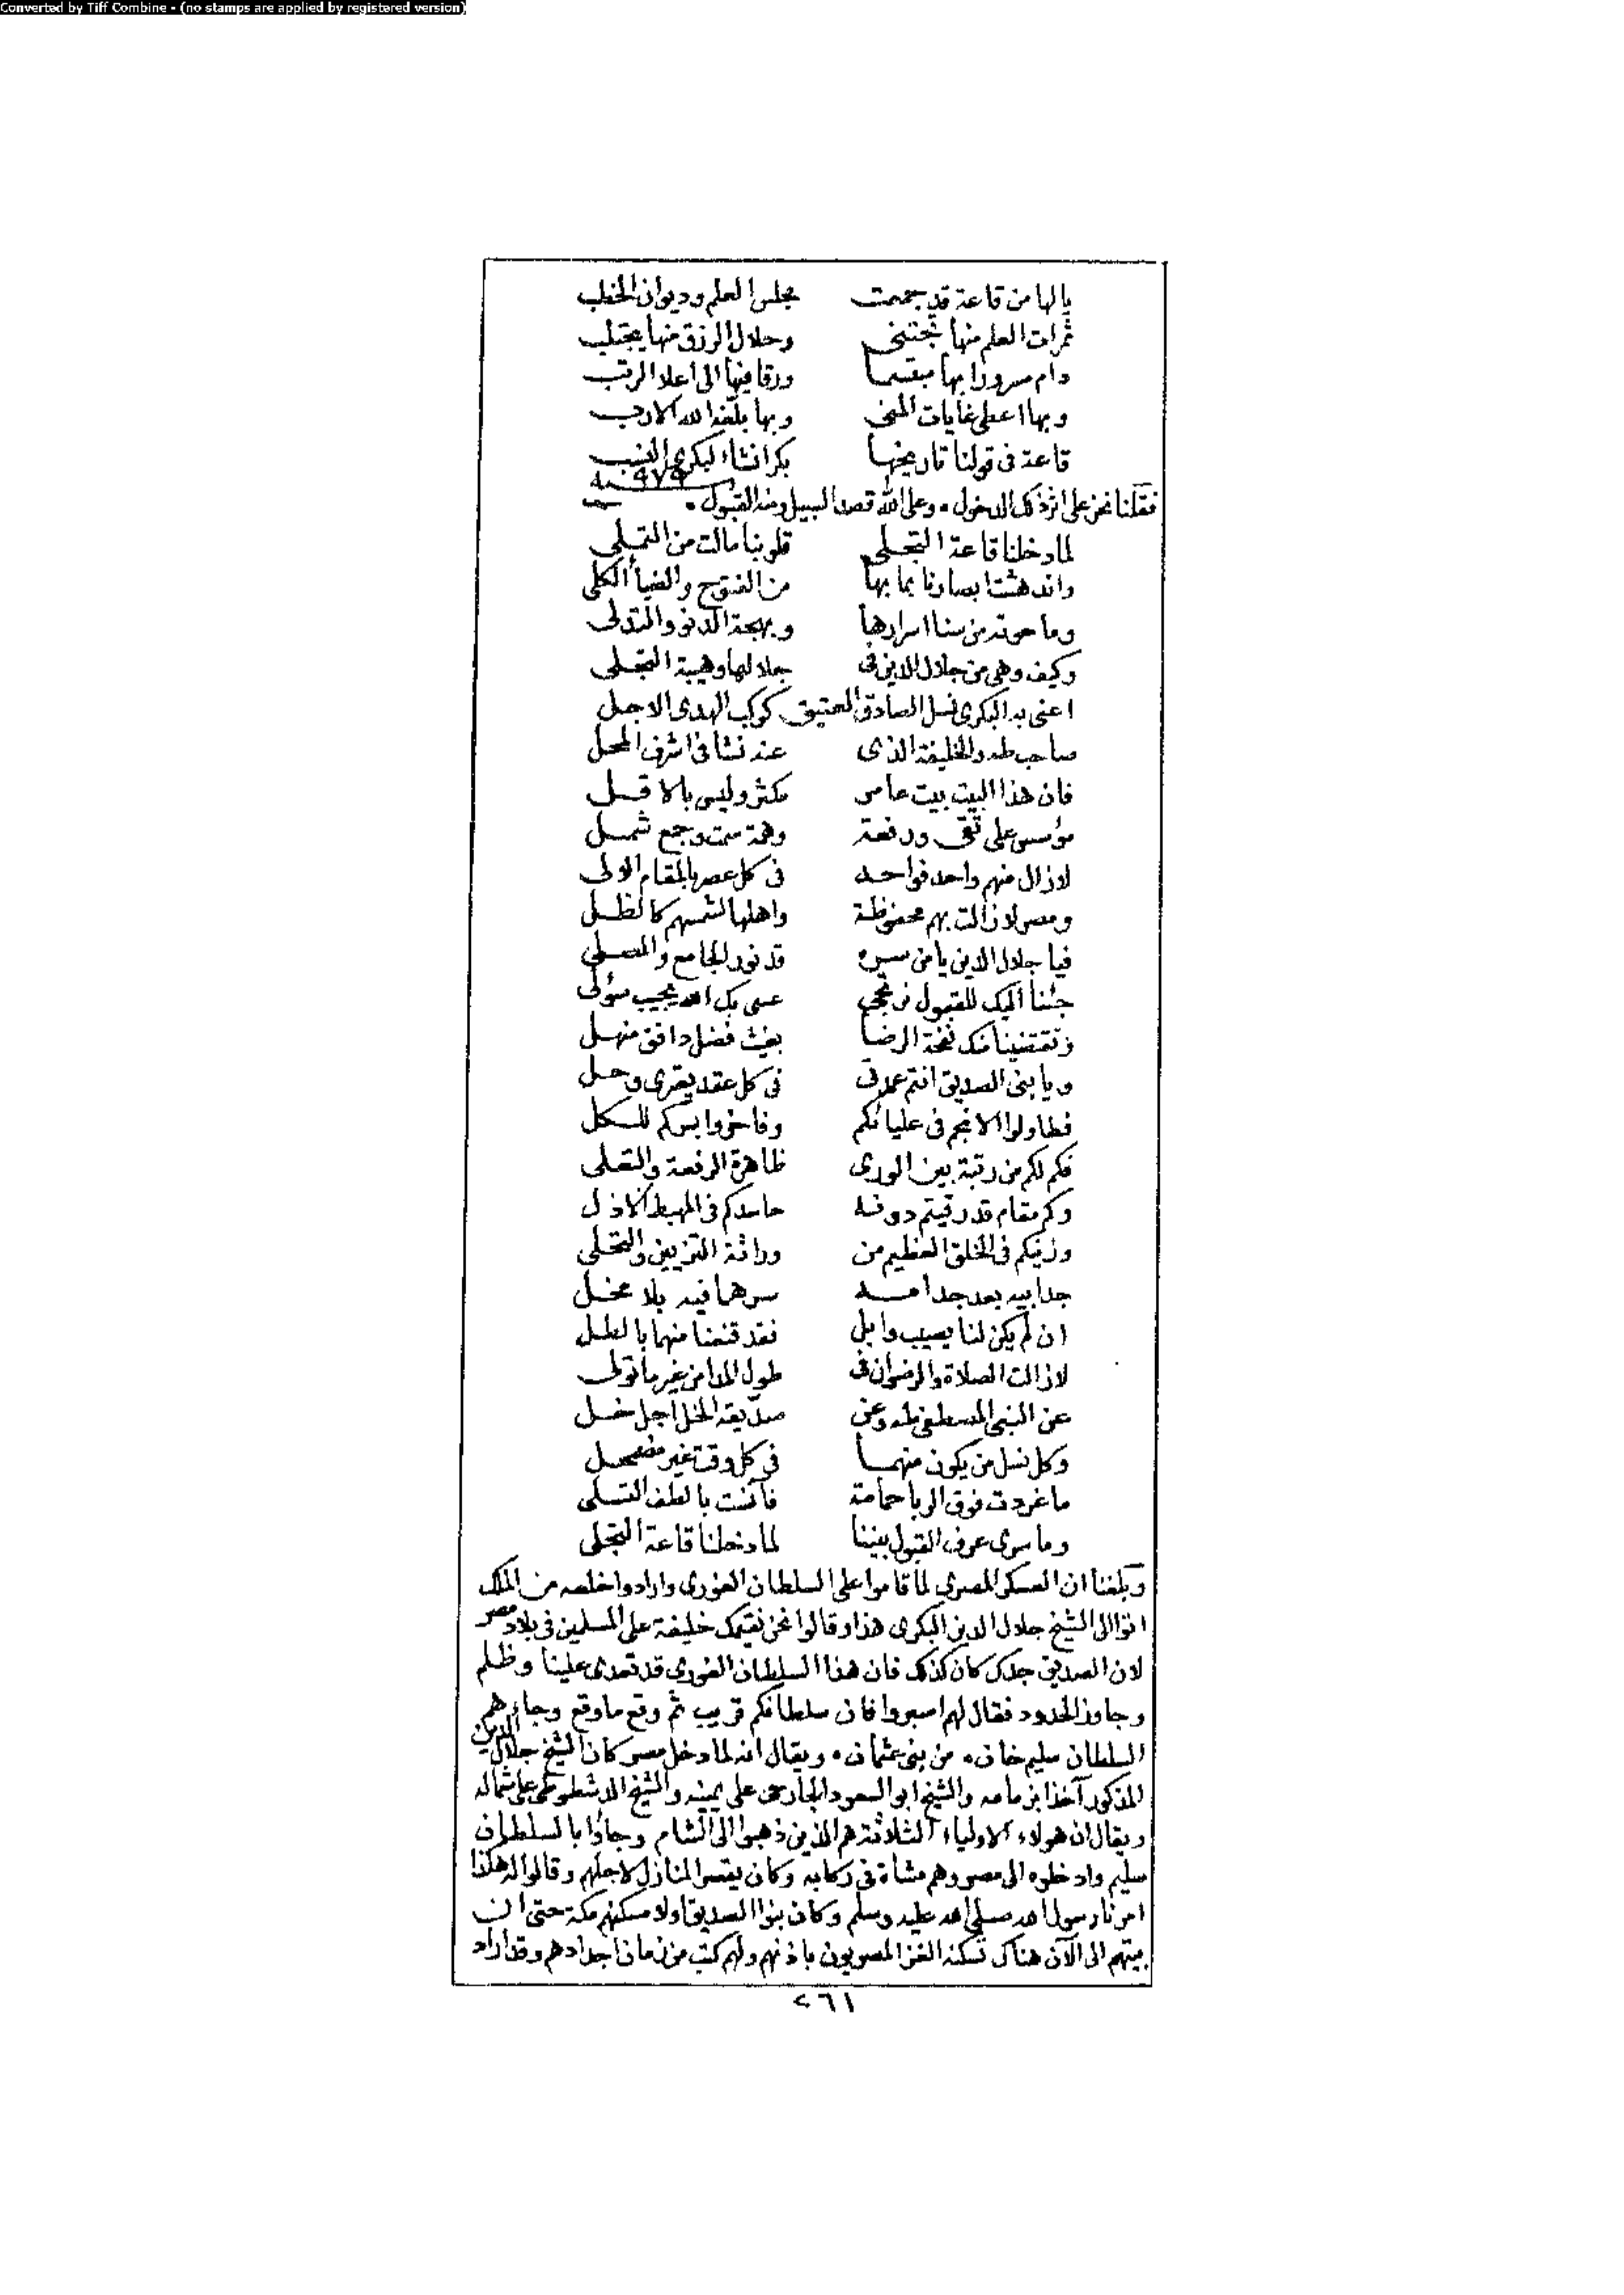 Converted by Tiff Combine - (no stamps are applied by registered version)
يالها من قاعة قد جمعت مجلس العلم وديوان الخطب
ثمرات العلم منها تجتنى وحلال الرزق منها يجتلب
دام مسرورا بها مبتسما ورقا فيها الى اعلا الرتب
وبها اعطى غايات المنى وبها بلغه الله الارب
قاعة فى قولنا تاريخها بكر انشاء لبكرى النسب
٩٧٩ سنة
فقلنا نحن على اثر ذلك الدخول • وعلى الله قصد السبيل ومنه القبول •
لما دخلنا قاعة التجلى قلوبنا مالت من التملى
واندهشت ابصارنا بما بها من الفتوح والضياء الكلى
وما حوته من سنا اسرارها وبهجة الدنو والتدلى
وكيف وهى من جلال الدين فى جلالها وهيبة التجلى
اعنى به البكرى نسل الصادق العتيق كوكب الهدى الاجل
صاحب طه والخليفة الذى عنه نشا فى اشرف المحل
فان هذا البيت بيت عامر مكثر وليس بالاقل
مؤسس على تقى ورفعة وهمة سمت وجمع شمل
لازال منهم واحد فواحد فى كل عصر بالمقام الاولى
ومصر لازالت بهم محفوظة واهلها لشمسهم كالظل
فيا جلال الدين يا من سره قد نور الجامع والمصلى
جئنا اليك للقبول نرتجى عسى بك الله يجيب سؤلى
وتقتنينا منك نفحة الرضا بغيث فضل دافق منهل
ويا بنى الصديق انتم عمدتى فى كل عقد يعترى وحل
فطاولوا الانجم فى عليائكم وفاخروا بسركم للكل
فكم لكم من رتبة بين الورى ظاهرة الرفعة والتعلى
وكم مقام قد رقيتم دونه حاسدكم فى المهبط الاذل
وزينكم فى الخلق العظيم من وراثة التزيين والتحلى
جد ابيه بعد جد امه سرهما فيه بلا مخل
ان لم يكن لنا يصيب وابل فقد قنعنا منهما بالطل
لازالت الصلاة والرضوان فى طول المدا من غير ما تولى
عن النبى المصطفى طه وعن صديقه الخل اجل خل
وكل نسل من يكون منهما فى كل وقت غير مضمحل
ما غردت فوق الربا حمامة فآنست باللطف التسلى
وما سرى عرف القبول بيننا لما دخلنا قاعة التجلى
وبلغنا ان العسكر المصرى لما قاموا على السلطان الغورى وارادوا خلعه من الملك
اتوا الى الشيخ جلال الدين البكرى هذا وقالوا نحن نقيمك خليفة على المسلمين فى بلاد مصر
لان الصديق جدك كان كذلك فان هذا السلطان الغورى قد تعدى علينا وظلم
وجاوز الحدود فقال لهم اصبروا فان سلطانكم قريب ثم وقع ما وقع وجاءهم
السلطان سليم خان • من بنى عثمان • ويقال انه لما دخل مصر كان الشيخ جلال الدين
المذكور آخذا بزمامه والشيخ ابو السعود الجارحى على يمينه والشيخ الدشطوطى على شماله
ويقال ان هولاء الاولياء الثلاثة هم الذين ذهبوا الى الشام وجاؤا بالسلطان
سليم وادخلوه الى مصر وهم مشاة فى ركابه وكان يقسم المنازل لاجلهم وقالوا له هكذا
امرنا رسول الله صلى الله عليه وسلم وكان بنوا الصديق اولا مسكنهم مكة حتى ان
بيتهم الى الآن هناك تسكنه الغز المصريون باذنهم ولهم كتب من زمان اجدادهم وقد اراد
٢٦١